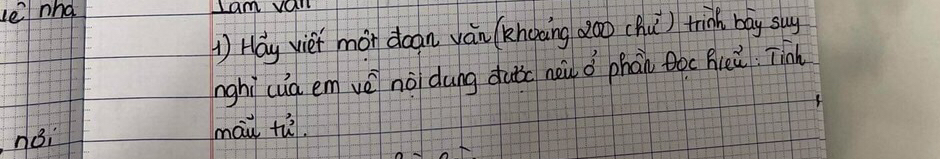 về nhà
Làm văn
1) Hãy viết một đoạn văn (khoảng 200 chữ) trình bày suy
nghĩ của em về nội dung được nêu ở phần Đọc hiểu: Tình
mẫu tử.
nơi